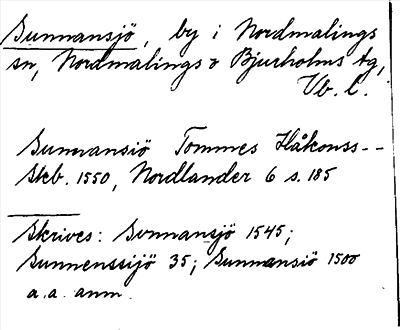 Sunnansjö, by i Nordmalings
sn, Nordmalings o Bjurholms tg,
Vb. l.
Sunnansiö Tommes Håkonss--
Skb. 1550, Nordlander 6 s. 185
Skrives: Sunnansjö 1545;
Sunnenssijö 35; Sunnansiö 1500
a.a. anm.